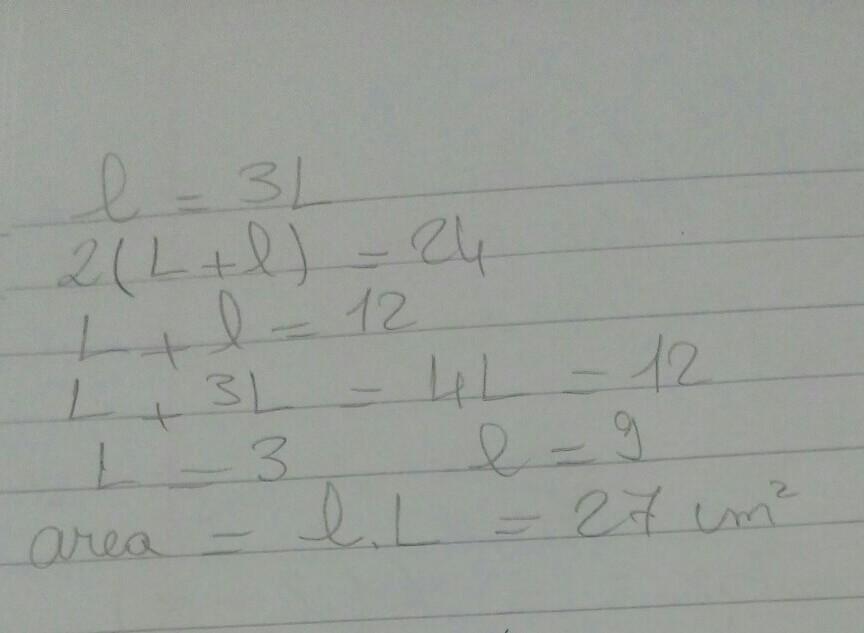 l = 3L
2(L+l) = 24
L + l = 12
L + 3L = 4L = 12
L = 3 l = 9
area = l.L = 27 cm²